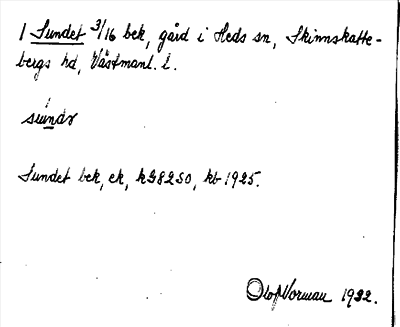 1 Sundet 3/16 bek, gård i Heds sn, Skinnskatte-
bergs hd, Västmanl. l.
Sundet bek, ek, k38250, kb 1925.
Olof Vorman 1932.